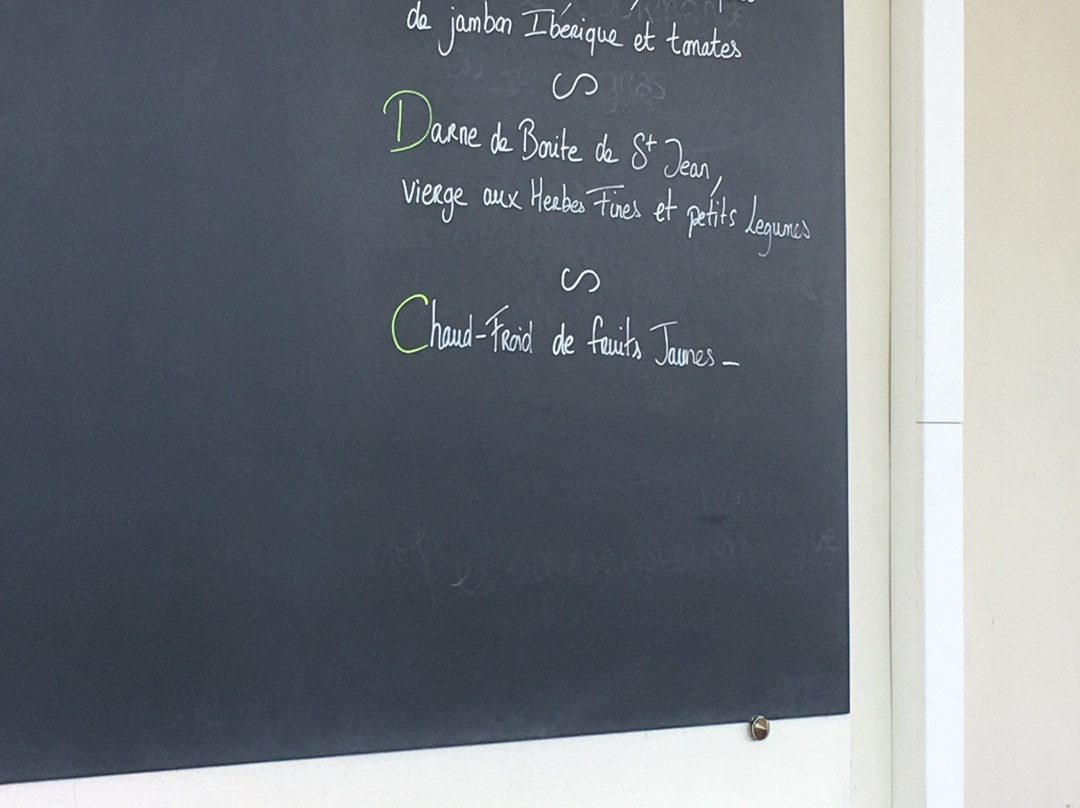 de jambon Ibérique et tomates
Darne de Bonite de St Jean,
vierge aux Herbes Fines et petits Legumes
Chaud-Froid de fruits Jaunes -